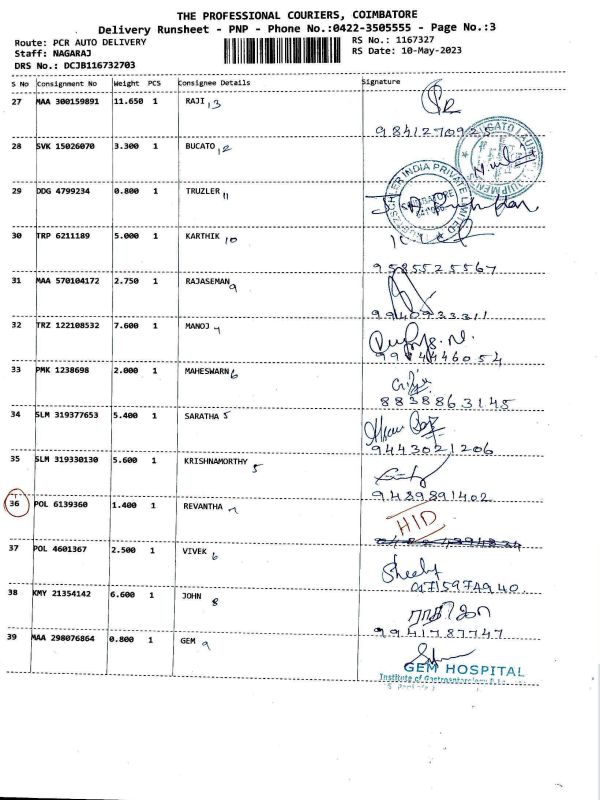 THE PROFESSIONAL COURIERS, COIMBATORE
Delivery Runsheet - PNP - Phone No.:0422-3505555 - Page No.:3
Route: PCR AUTO DELIVERY
Staff: NAGARAJ
DRS No.: DCJB116732703
RS No.: 1167327
RS Date: 10-May-2023
S No Consignment No Weight PCS Consignee Details Signature
27 MAA 300159891 11.650 1 RAJI 13
9841270925
28 SVK 15026070 3.300 1 BUCATO 12
29 DDG 4799234 0.800 1 TRUZLER 11
30 TRP 6211189 5.000 1 KARTHIK 10
9585525567
31 MAA 570104172 2.750 1 RAJASEMAN 9
9940933311
32 TRZ 122108532 7.600 1 MANOJ
33 PMK 1238698 2.000 1 MAHESWARN 6
8838863145
34 SLM 319377653 5.400 1 SARATHA 5
9443021206
35 SLM 319330130 5.600 1 KRISHNAMORTHY 5
9489891402
36 POL 6139360 1.400 1 REVANTHA
HID
37 POL 4601367 2.500 1 VIVEK 6
38 KMY 21354142 6.600 1 JOHN 8
9941787747
39 MAA 298076864 0.800 1 GEM 9
GEM HOSPITAL